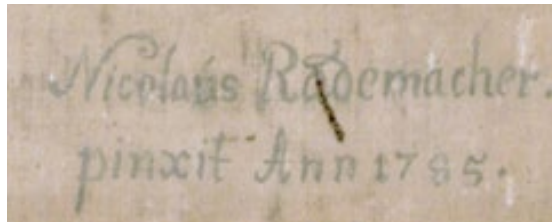 Nicolaús Rademacher.
pinxit Ann 1785.